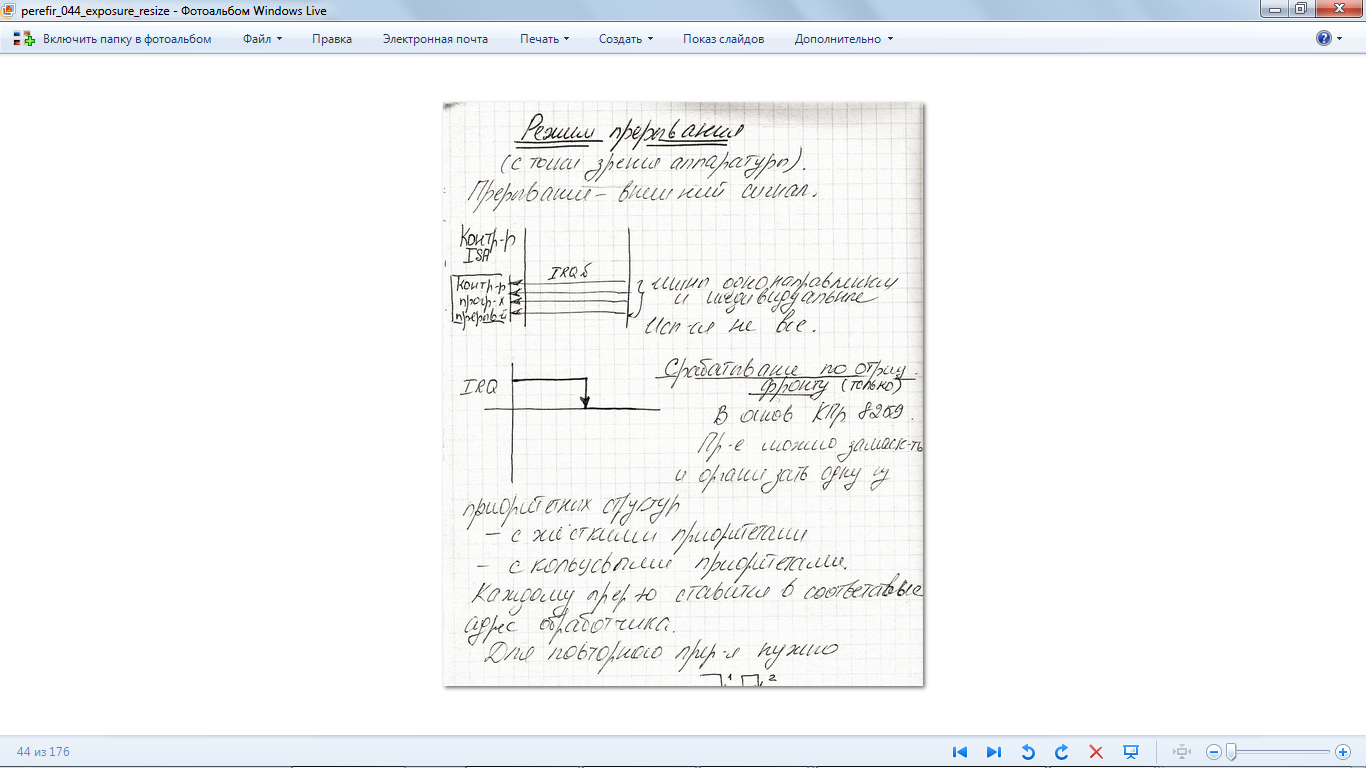 perefir_044_exposure_resize - Фотоальбом Windows Live
Включить папку в фотоальбом Файл Правка Электронная почта Печать Создать Показ слайдов Дополнительно
Режим прерывания
(с точки зрения аппаратуры).
Прерывание – внешний сигнал.
Контр-р
ISA
IRQ 5
контр-р
прогр-х
прерыв-й
шины однонаправленны
и индивидуальные
Исп-ся не все.
IRQ
Срабатывание по отриц.
фронту (только)
В основ КПр 8259.
Пр-е можно замаск-ть
и организать одну из
приоритетных структур
– с жёсткими приоритетами
– с кольцевыми приоритетами.
Каждому прер-ю ставится в соответствие
адрес обработчика.
Для повторного прер-я нужно
1 2
44 из 176